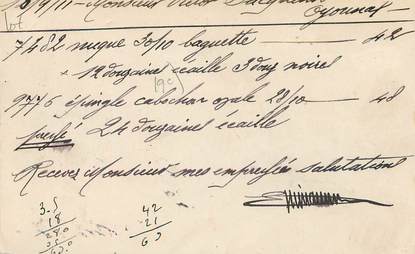 Monsieur
Oyonnax
7/482 nuque 30/10 baguette 42
12 douzaines écaille 3 douz noires
(19c)
9776 épingle cabochon ovale 28/10 48
24 douzaines écaille
Recevez Monsieur mes empressées salutations
3.5
18
280
35
630
42
21
63